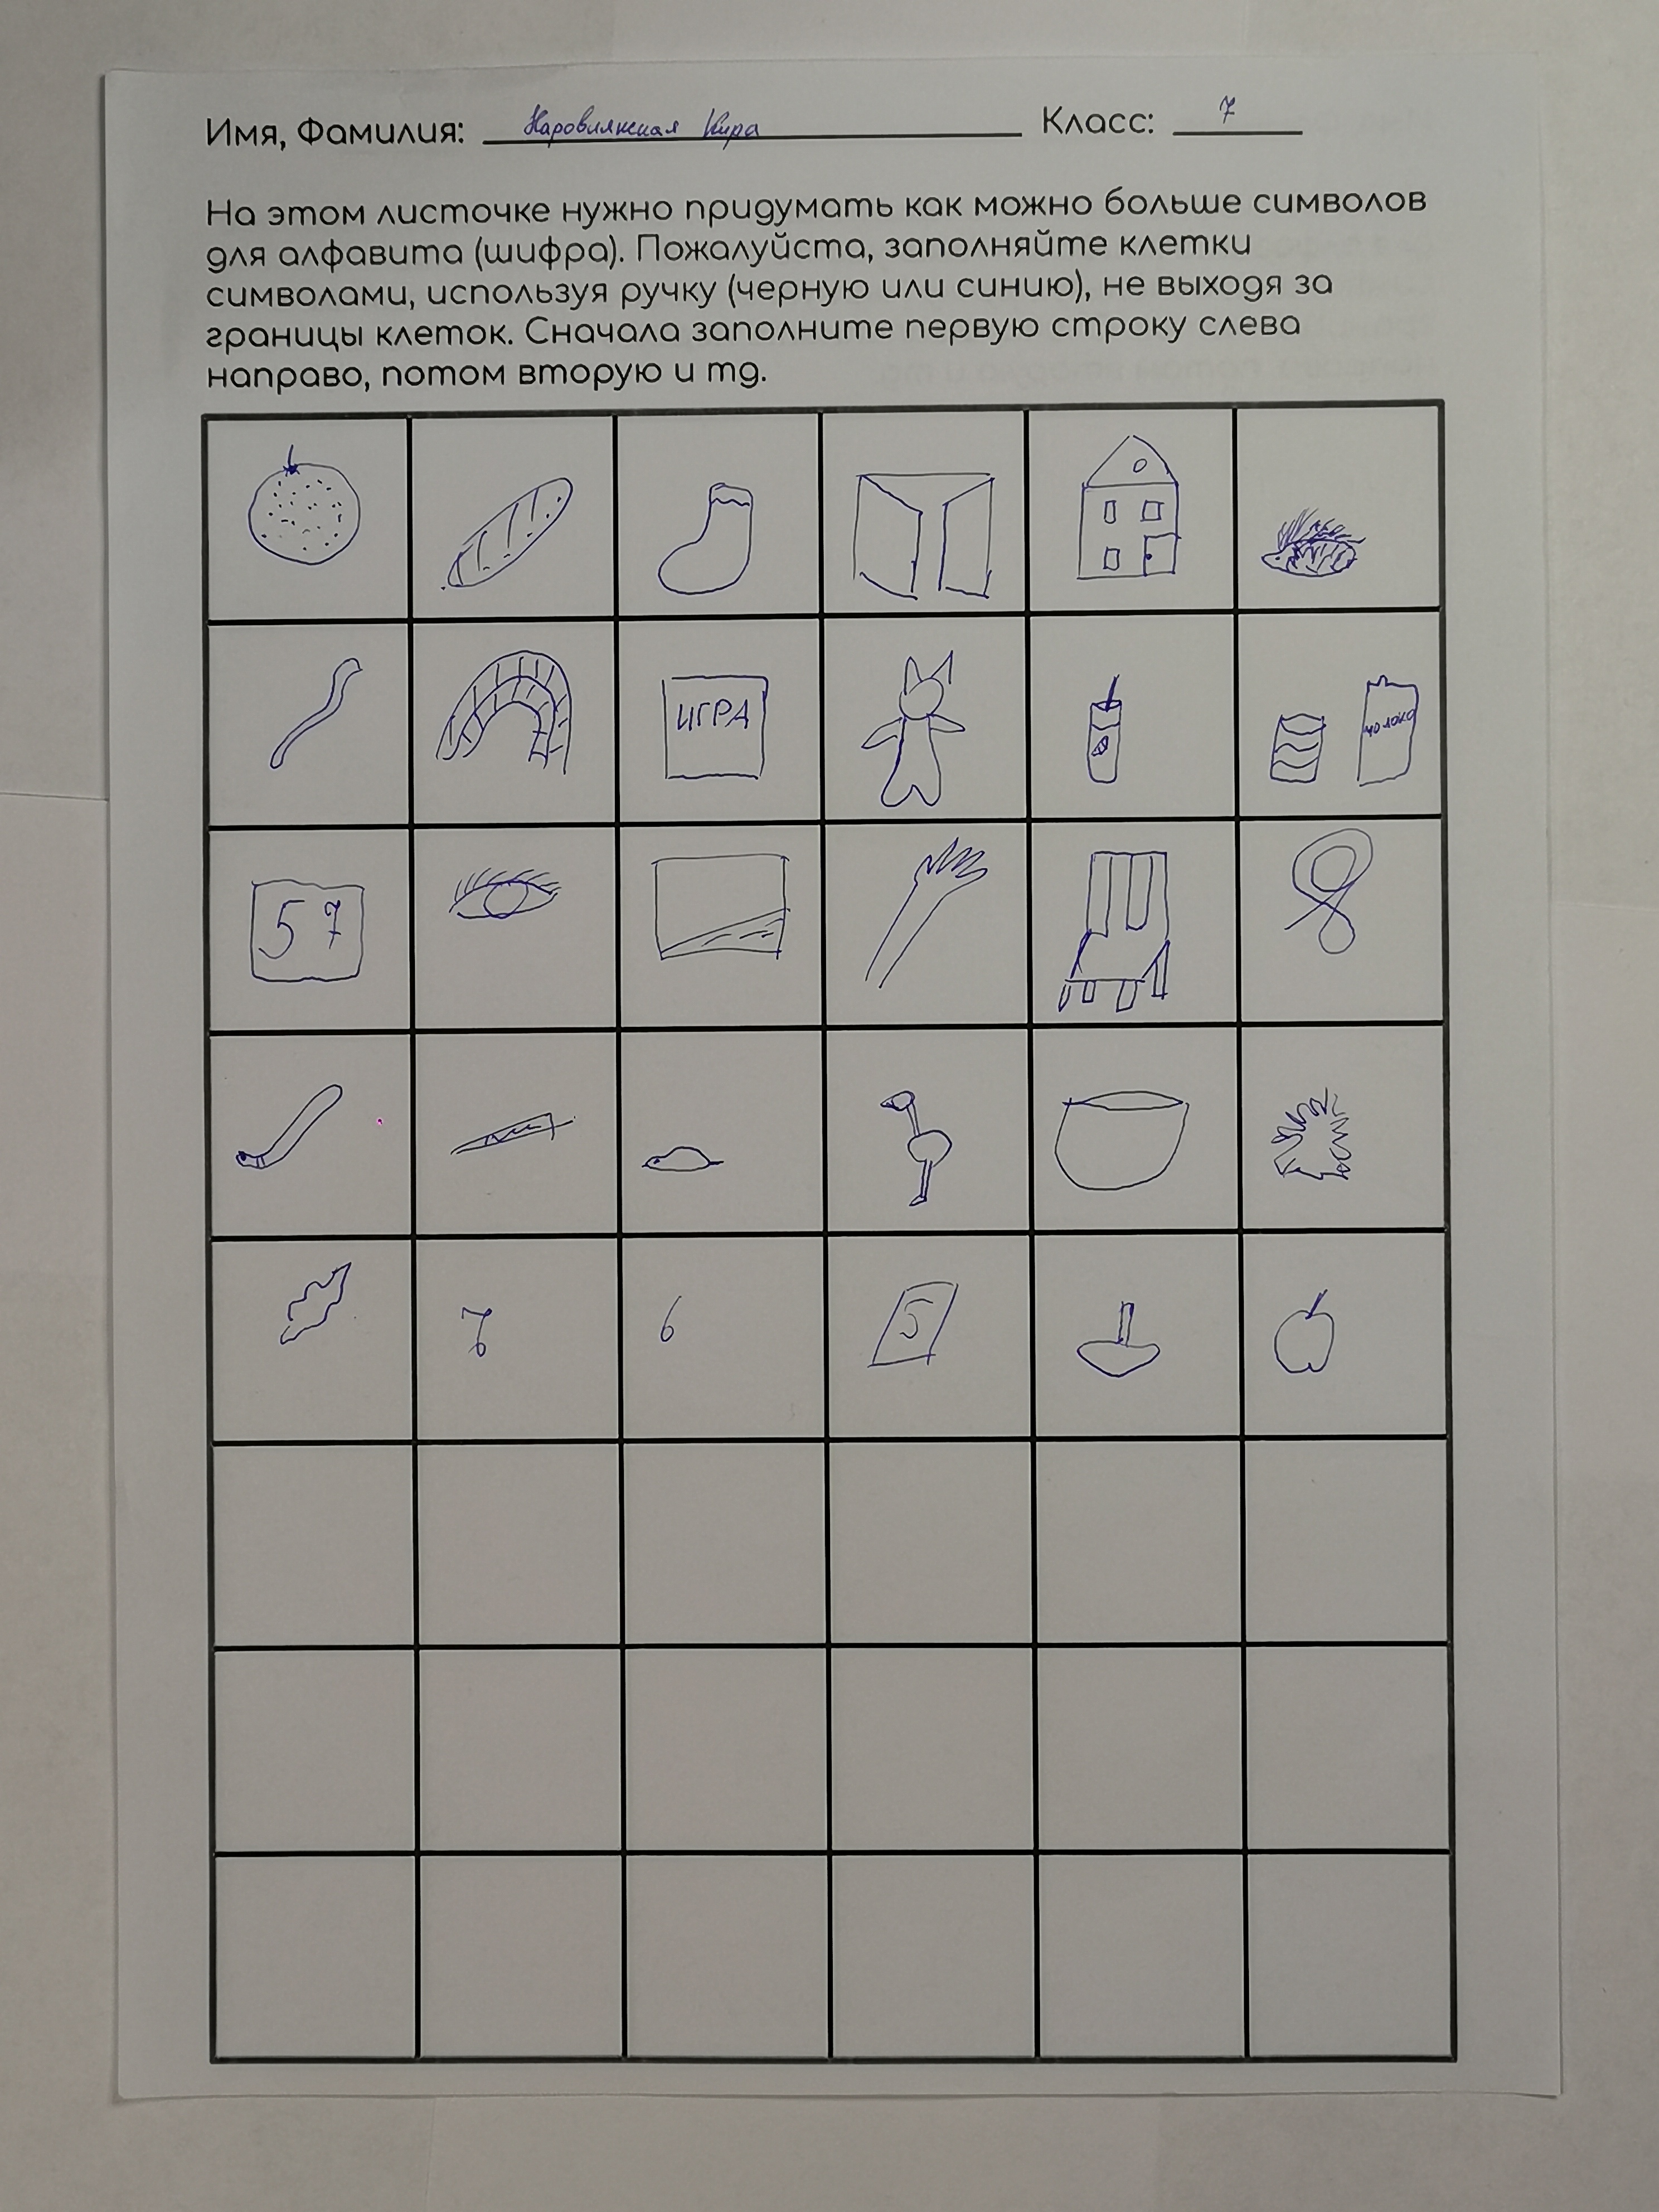 Имя, Фамилия: Наровлянская Кира Класс: 7
На этом листочке нужно придумать как можно больше символов
для алфавита (шифра). Пожалуйста, заполняйте клетки
символами, используя ручку (черную или синию), не выходя за
границы клеток. Сначала заполните первую строку слева
направо, потом вторую и тд.
ИГРА
молоко
57
7 6 5